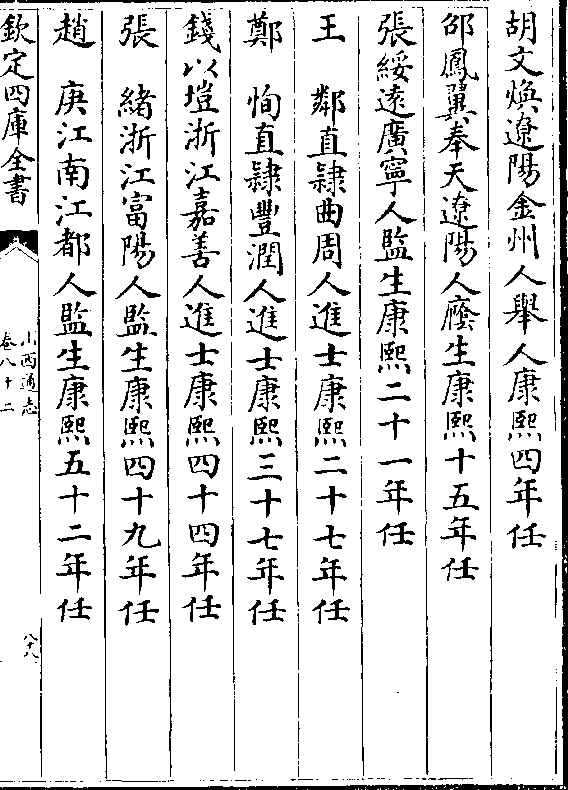 胡文煥遼陽金州人舉人康熙四年任
邵鳳翼奉天遼陽人廕生康熙十五年任
張綏遠廣寧人監生康熙二十一年任
王　鄰直隸曲周人進士康熙二十七年任
鄭　恂直隸豐潤人進士康熙三十七年任
錢以塏浙江嘉善人進士康熙四十四年任
張　緒浙江富陽人監生康熙四十九年任
趙　庚江南江都人監生康熙五十二年任
欽定四庫全書
山西通志
卷八十二
八十八